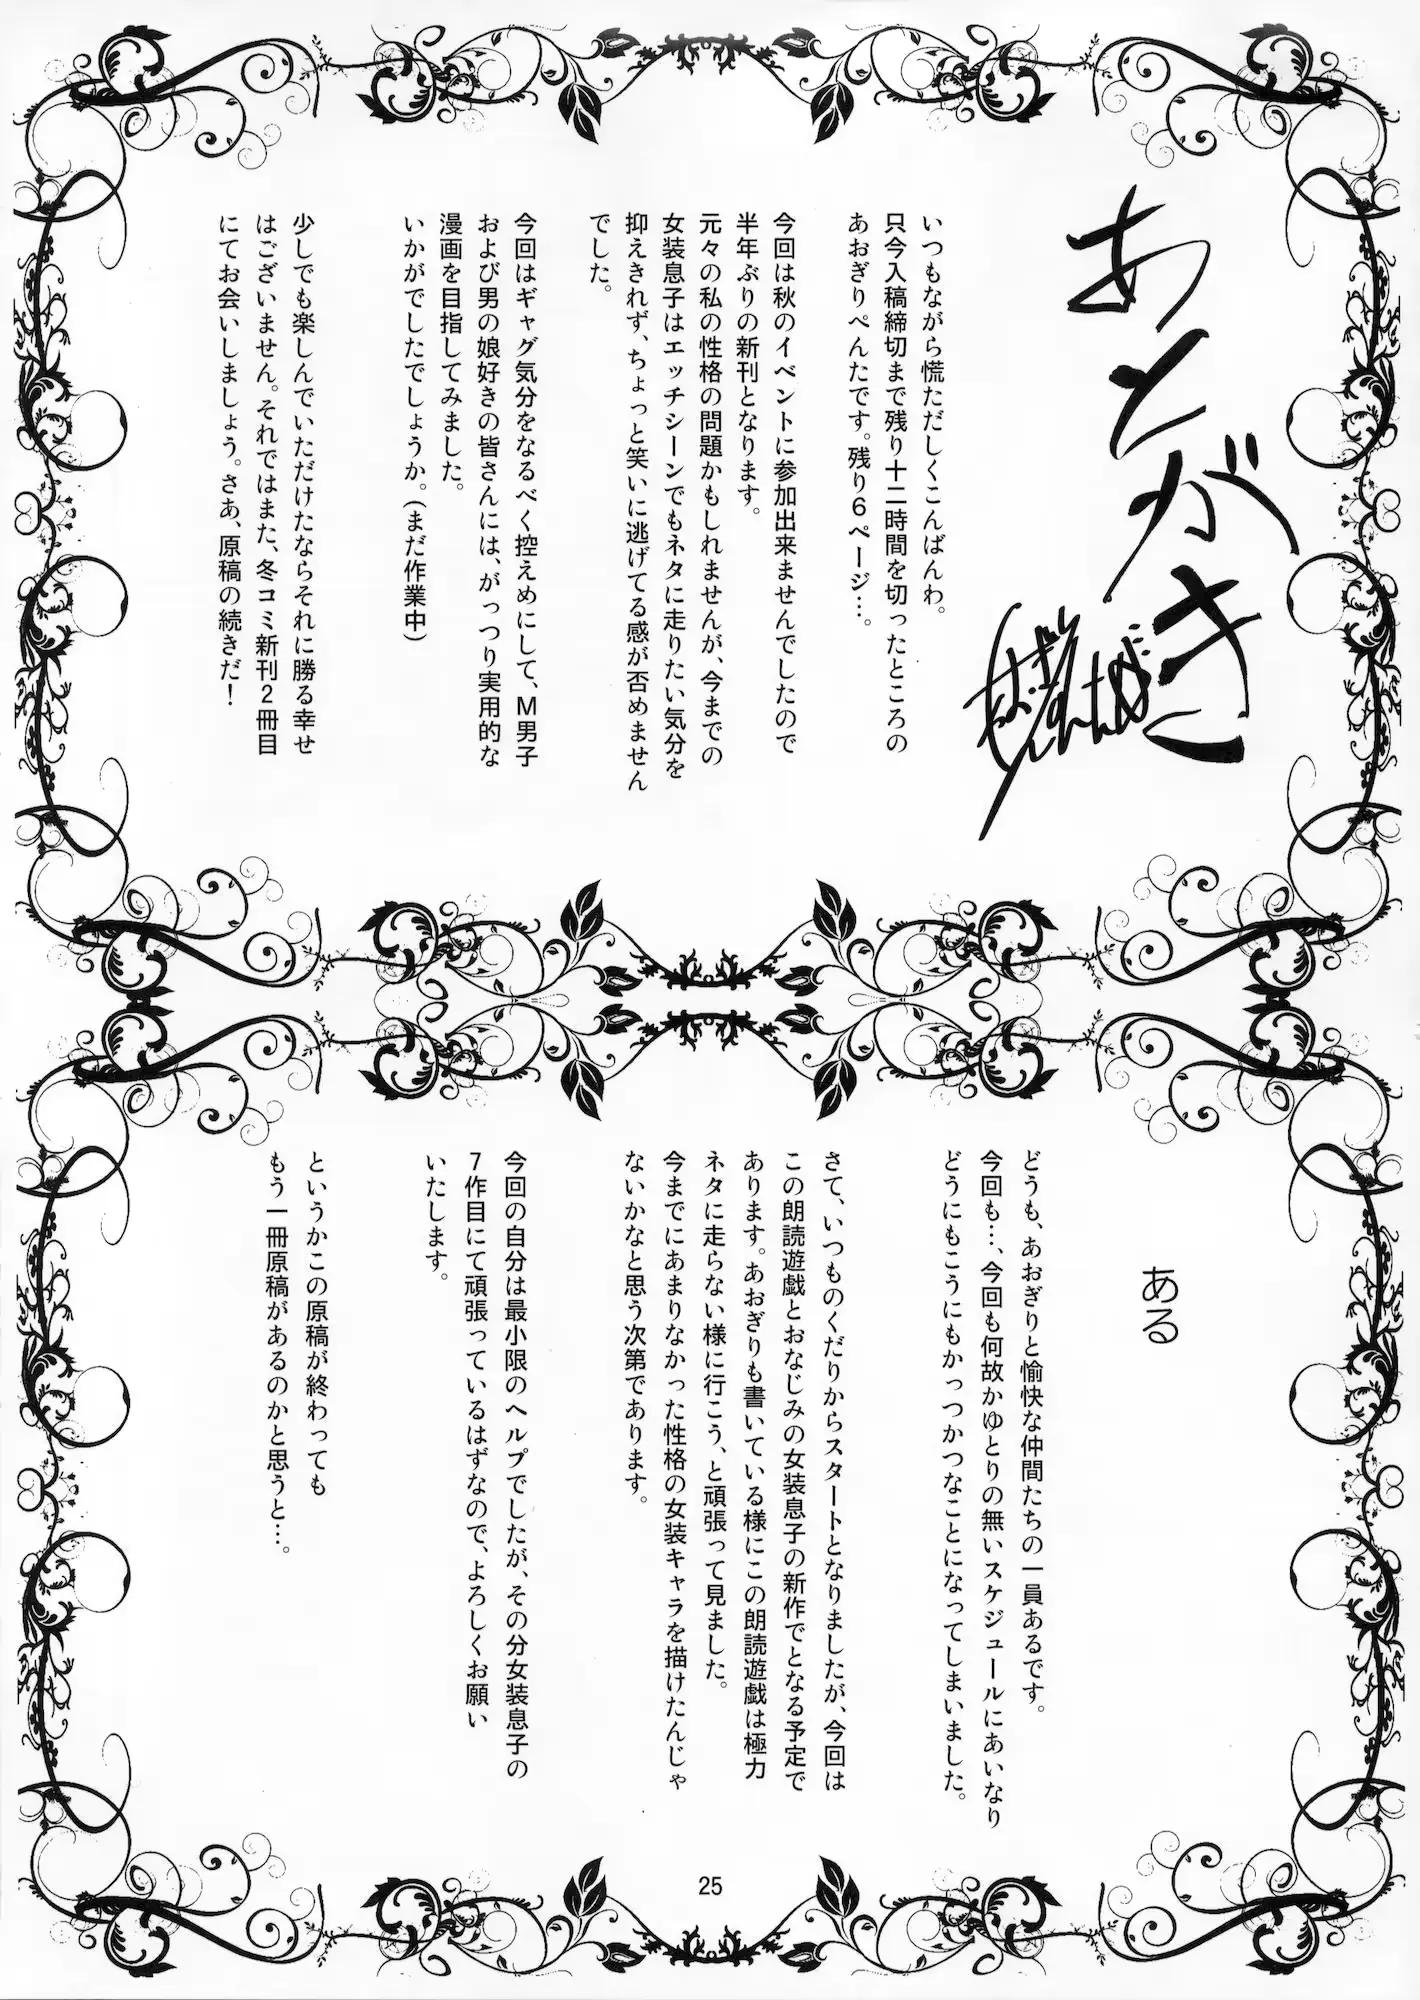 あとがき
いつもながら慌ただしくこんばんわ。
只今入稿締切まで残り十二時間を切ったところの
あおぎりぺんたです。残り6ページ…。
今回は秋のイベントに参加出来ませんでしたので
半年ぶりの新刊となります。
元々の私の性格の問題かもしれませんが、今までの
女装息子はエッチシーンでもネタに走りたい気分を
抑えきれず、ちょっと笑いに逃げてる感が否めません
でした。
今回はギャグ気分をなるべく控えめにして、M男子
および男の娘好きの皆さんには、がっつり実用的な
漫画を目指してみました。
いかがでしたでしょうか。(まだ作業中)
少しでも楽しんでいただけたならそれに勝る幸せ
はございません。それではまた、冬コミ新刊2冊目
にてお会いしましょう。さあ、原稿の続きだ!
ある
どうも、あおぎりと愉快な仲間たちの一員あるです。
今回も…、今回も何故かゆとりの無いスケジュールにあいなり
どうにもこうにもかっつかつなことになってしまいました。
さて、いつものくだりからスタートとなりましたが、今回は
この朗読遊戯とおなじみの女装息子の新作でとなる予定で
あります。あおぎりも書いている様にこの朗読遊戯は極力
ネタに走らない様に行こう、と頑張って見ました。
今までにあまりなかった性格の女装キャラを描けたんじゃ
ないかなと思う次第であります。
今回の自分は最小限のヘルプでしたが、その分女装息子の
7作目にて頑張っているはずなので、よろしくお願い
いたします。
というかこの原稿が終わっても
もう一冊原稿があるのかと思うと…。
25